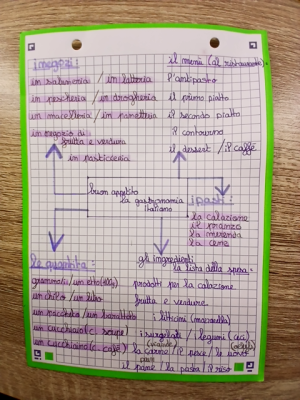 i negozi :
in salumeria / in latteria
in pescheria / in drogheria
in macelleria / in panetteria
in negozio di
frutta e verdura
in pasticceria
il menù (al ristorante)
l'antipasto
il primo piatto
il secondo piatto
il contorno
il dessert / il caffè
buon appetito
la gastronomia
italiano
i pasti :
la colazione
il pranzo
la merenda
la cena
le quantità :
grammi / un etto
un chilo / un litro
un pacchetto / un barattolo
un cucchiaio (c. soupe)
un cucchiaino (c. café)
gli ingredienti
la lista della spesa
prodotti per la colazione
frutta e verdure
i latticini
i surgelati / legumi (ceci)
la carne / il pesce / le uova
il pane / la pasta / il riso